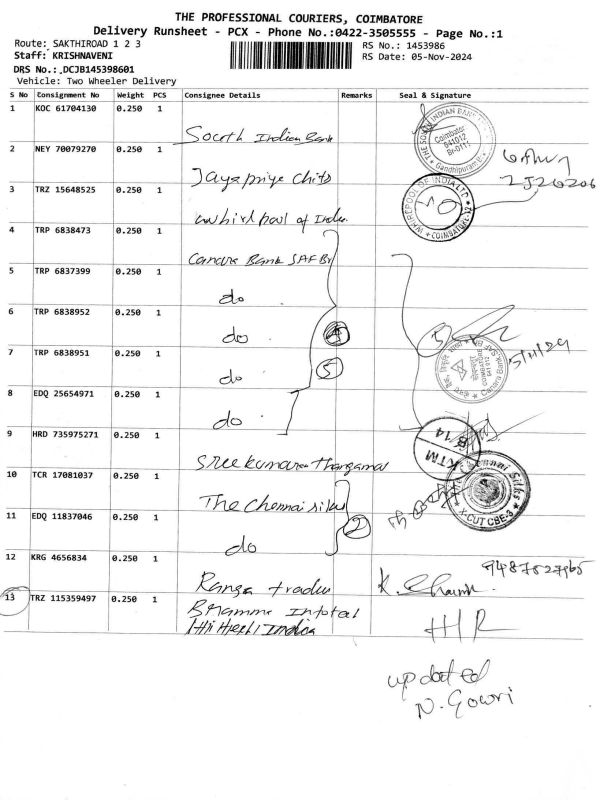 THE PROFESSIONAL COURIERS, COIMBATORE
Delivery Runsheet - PCX - Phone No.:0422-3505555 - Page No.:1
Route: SAKTHIROAD 1 2 3
RS No.: 1453986
Staff: KRISHNAVENI
RS Date: 05-Nov-2024
DRS No.: DCJB145398601
Vehicle: Two Wheeler Delivery
S No Consignment No Weight PCS Consignee Details Remarks Seal & Signature
1 KOC 61704130 0.250 1 South Indian Bank
2 NEY 70079270 0.250 1 Jayapriya Chits
3 TRZ 15648525 0.250 1 whirl pool of India
4 TRP 6838473 0.250 1 Canara Bank SAF Br
5 TRP 6837399 0.250 1 do
6 TRP 6838952 0.250 1 do
7 TRP 6838951 0.250 1 do
5
8 EDQ 25654971 0.250 1 do
9 HRD 735975271 0.250 1 Sreekumaran Thangamal
10 TCR 17081037 0.250 1 The Chennai silks
11 EDQ 11837046 0.250 1 do
2
12 KRG 4656834 0.250 1 Ranga traders
13 TRZ 115359497 0.250 1 Bramma Infotat
India
THE SOUTH INDIAN BANK
Coimbatore
641012
Br-0119
Gandhipuram
WHIRLPOOL OF INDIA LTD
COIMBATORE-12
5
5/11/24
Canara Bank
SAF BR
COIMBATORE
641 012
B/14
KTM
Chennai Silks
X-CUT CBE-3
HR
updated
N. Gowri